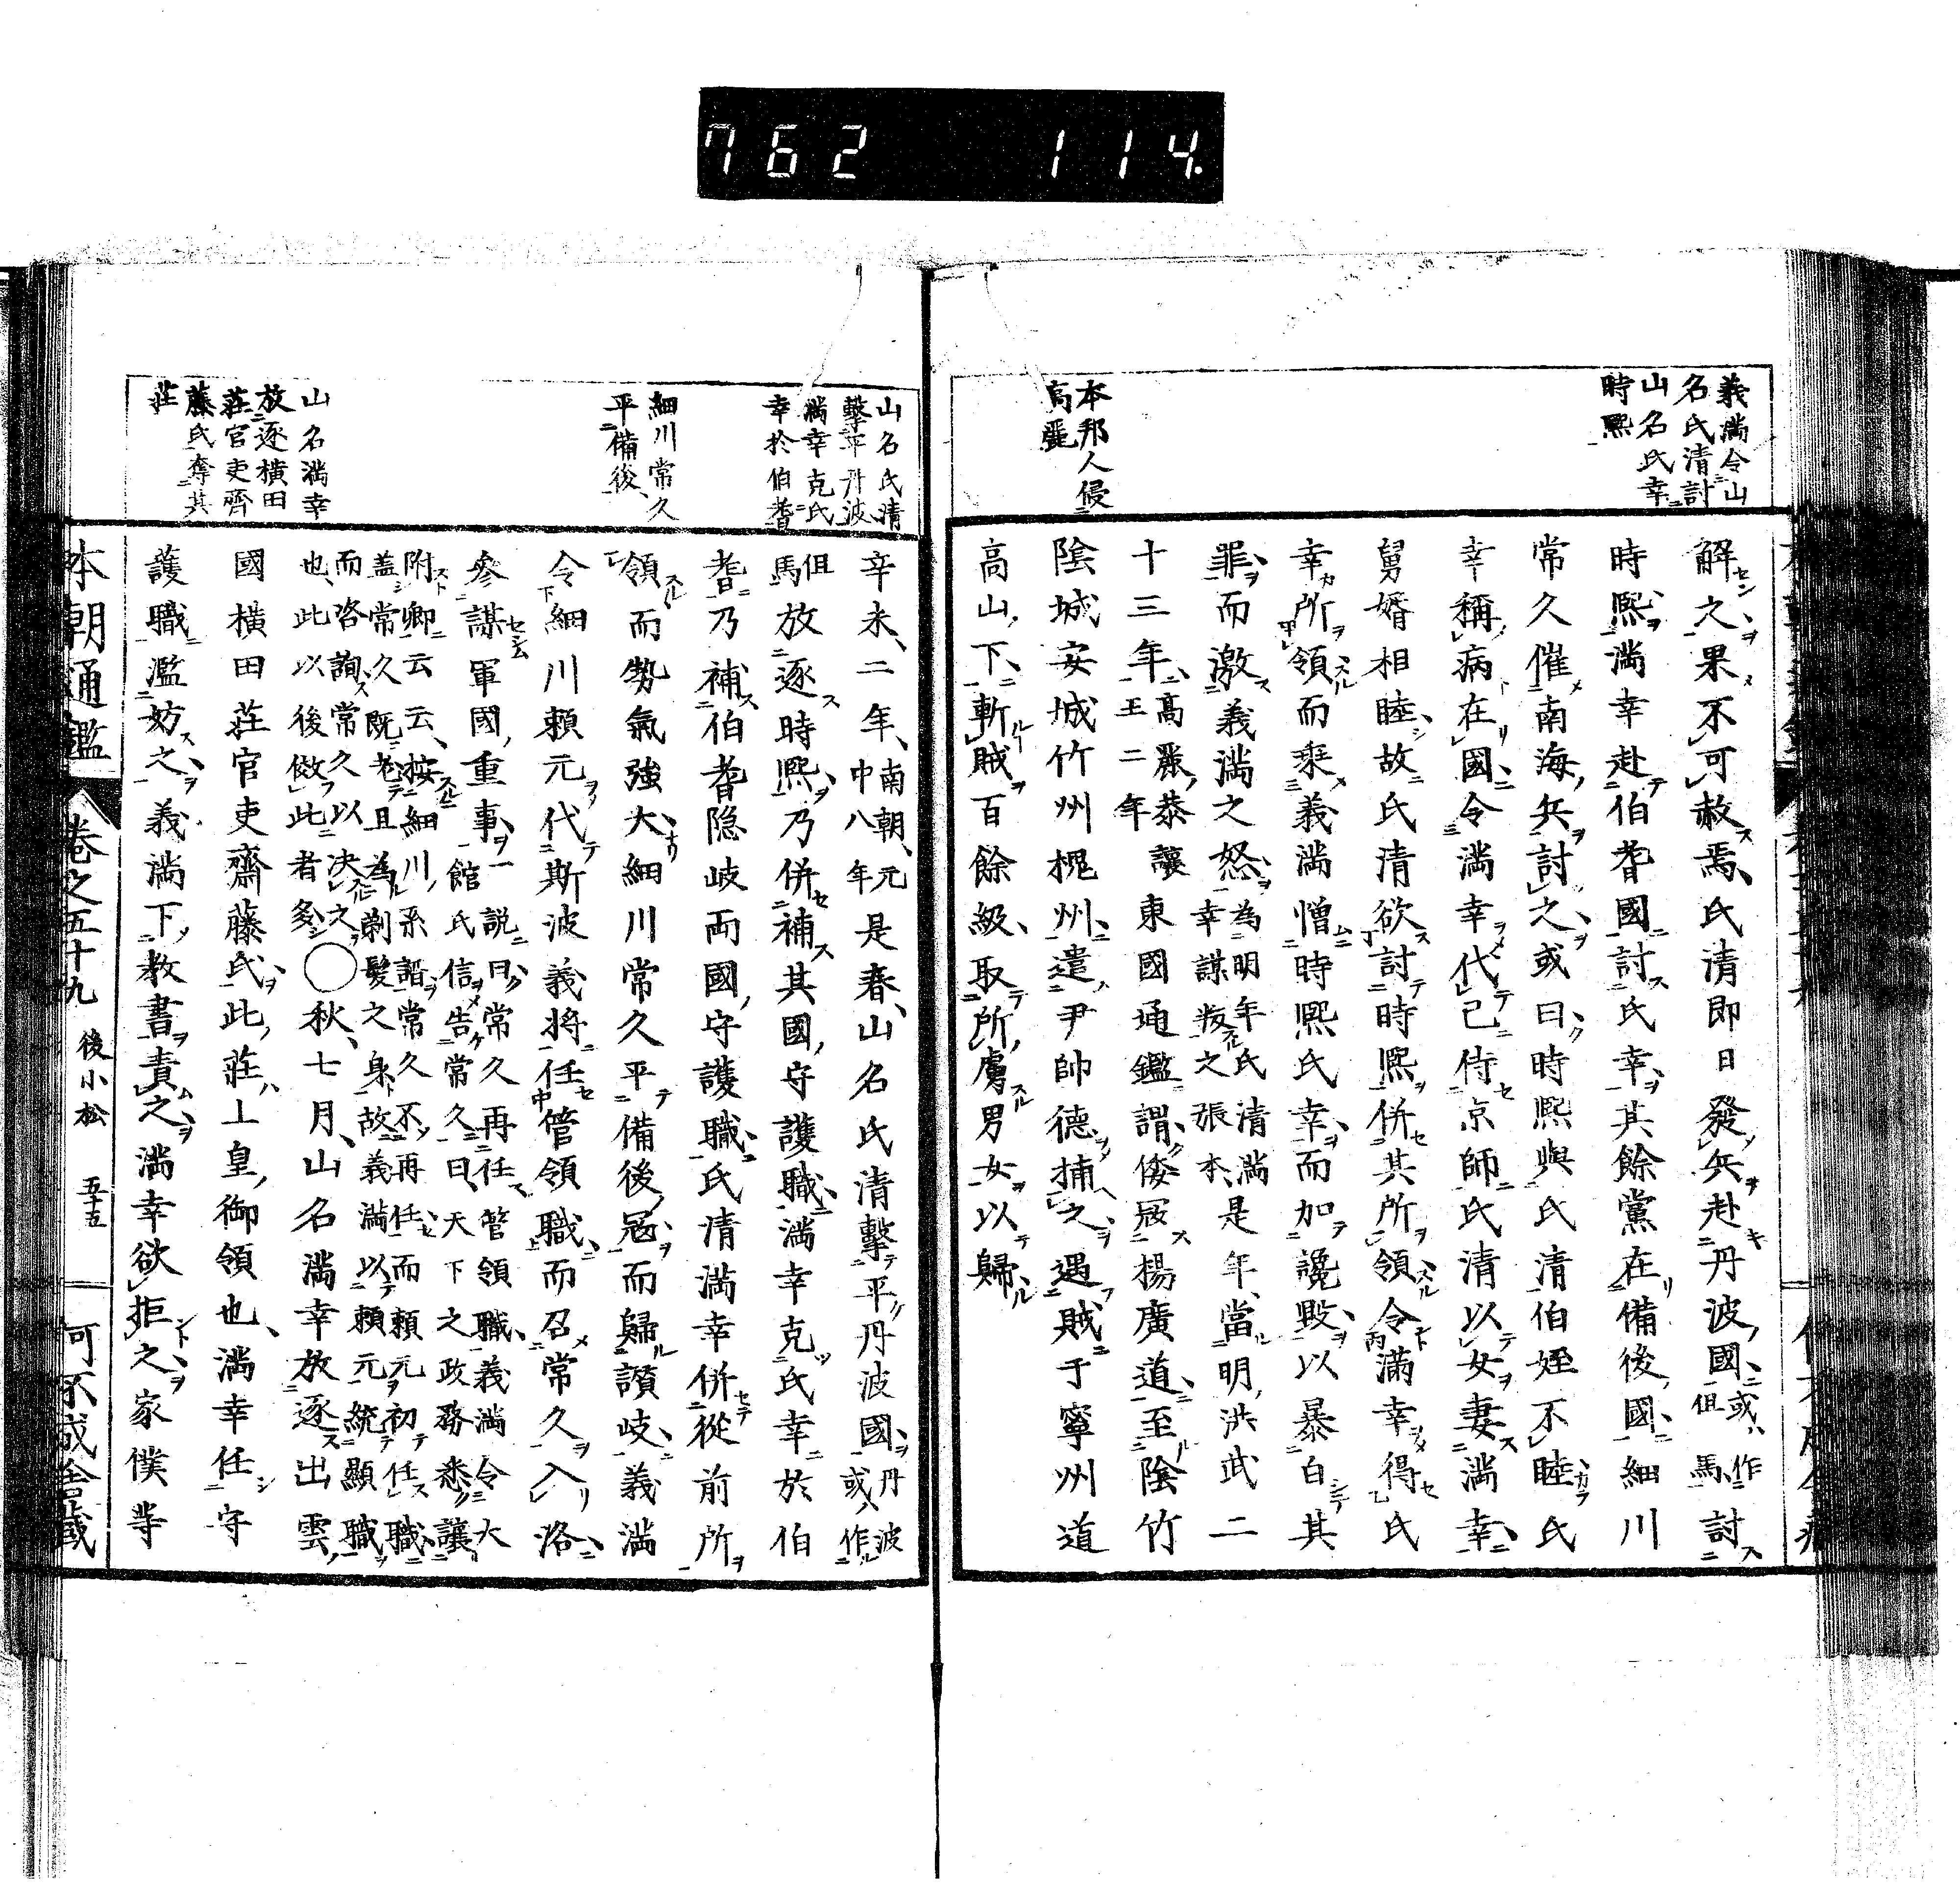 762 114.
義満令山
名氏清討
山名氏幸
時熙
本邦人侵
高麗
解之果不可赦焉氏清即日發兵赴丹波國或作但馬討
時熙満幸赴伯耆國討氏幸其餘黨在備後國細川
常久催南海兵討之或曰時熙與氏清伯姪不睦氏
幸稱病在國令満幸代己侍京師氏清以女妻満幸
舅婿相睦故氏清欲討時熙併其所領令満幸得氏
幸所領而乘義満憎時熙氏幸而加讒毀以暴白其
罪而激義満之怒為明年氏清満幸謀叛之張本是年當明洪武二
十三年高麗恭讓王二年東國通鑑謂倭冦楊廣道至陰竹
陰城安城竹州槐州遣尹師德捕之遇賊于寧州道
高山下斬賊百餘級取所虜男女以歸
山名氏清
擊平丹波
満幸克氏
幸於伯耆
細川常久
平備後
山名満幸
放逐横田
莊官吏齊
藤氏奪其
莊
辛未二年南朝元中八年是春山名氏清擊平丹波國丹波或作
但馬放逐時熙乃併補其國守護職満幸克氏幸於伯
耆乃補伯耆隠岐両國守護職氏清満幸併從前所
領而勢氣強大細川常久平備後冦而歸讃岐義満
令細川頼元代斯波義将任管領職而召常久入洛
參謀軍國重事一説曰常久再任管領職義満令大館氏信告常久曰天下之政務悉讓
附卿云云按細川系譜常久不再任而頼元初任職
盖常久既老且為剃髪之身故義満以頼元統顯職
而咨詢常久以決之
也此以後傚此者多〇秋七月山名満幸放逐出雲
國横田莊官吏齋藤氏此莊上皇御領也満幸任守
護職濫妨之義満下教書責之満幸欲拒之家僕等
本朝通鑑 卷之五十九 後小松 五十五 可不成舎蔵